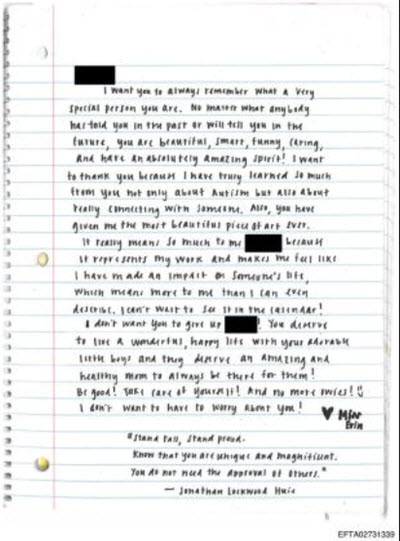 I want you to always remember what a very
special person you are. No matter what anybody
has told you in the past or will tell you in the
future, you are beautiful, smart, funny, caring,
and have an absolutely amazing spirit! I want
to thank you because I have truly learned so much
from you not only about Autism but also about
really connecting with someone. Also, you have
given me the most beautiful piece of art ever.
It really means so much to me because
it represents my work and makes me feel like
I have made an impact on someone's life,
which means more to me than I can even
describe. I can't wait to see it in the calendar!
I don't want you to give up ! You deserve
to live a wonderful, happy life with your adorable
little boys and they deserve an amazing and
healthy mom to always be there for them!
Be good! Take care of yourself! And no more
I don't want to have to worry about you! ♥ Miss
Erin
"Stand tall, stand proud.
Know that you are unique and magnificent.
You do not need the approval of others."
— Jonathan Lockwood Huie
EFTA02731339